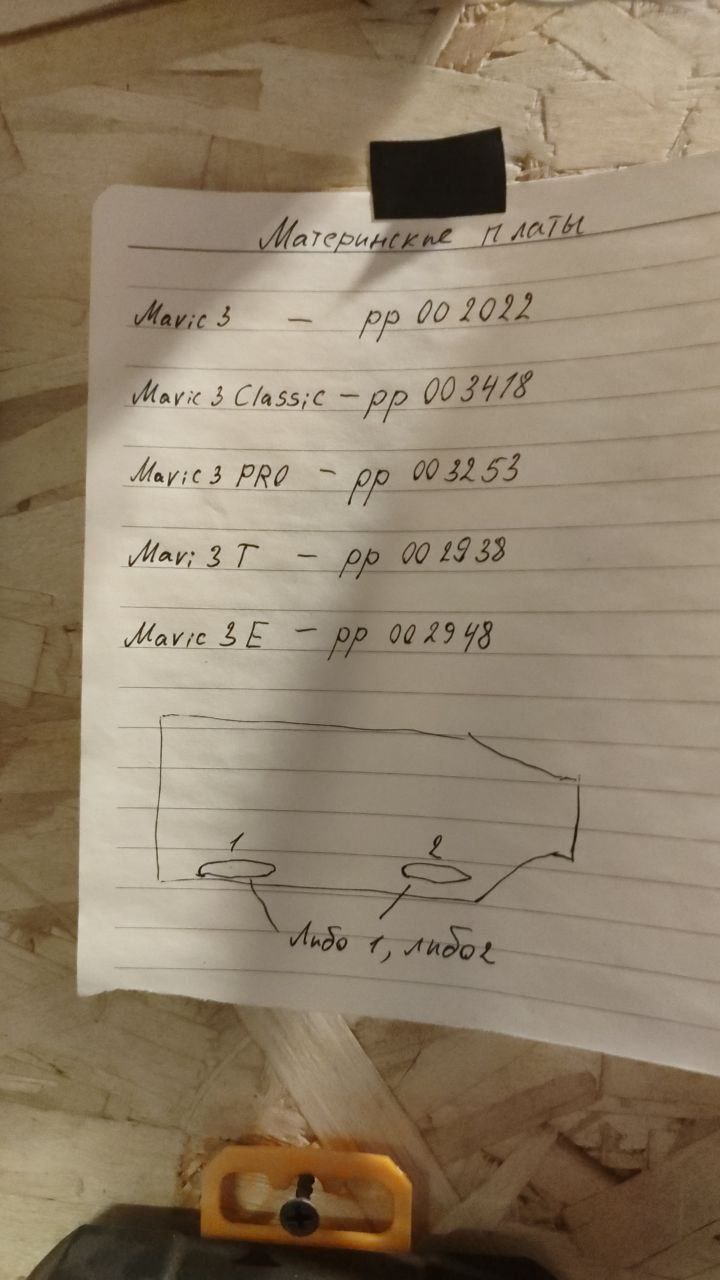 Материнские платы
Mavic 3 – pp 002022
Mavic 3 Classic – pp 003418
Mavic 3 PRO – pp 003253
Mavi 3 T – pp 002938
Mavic 3 E – pp 002948
1 2
Либо 1, либо 2